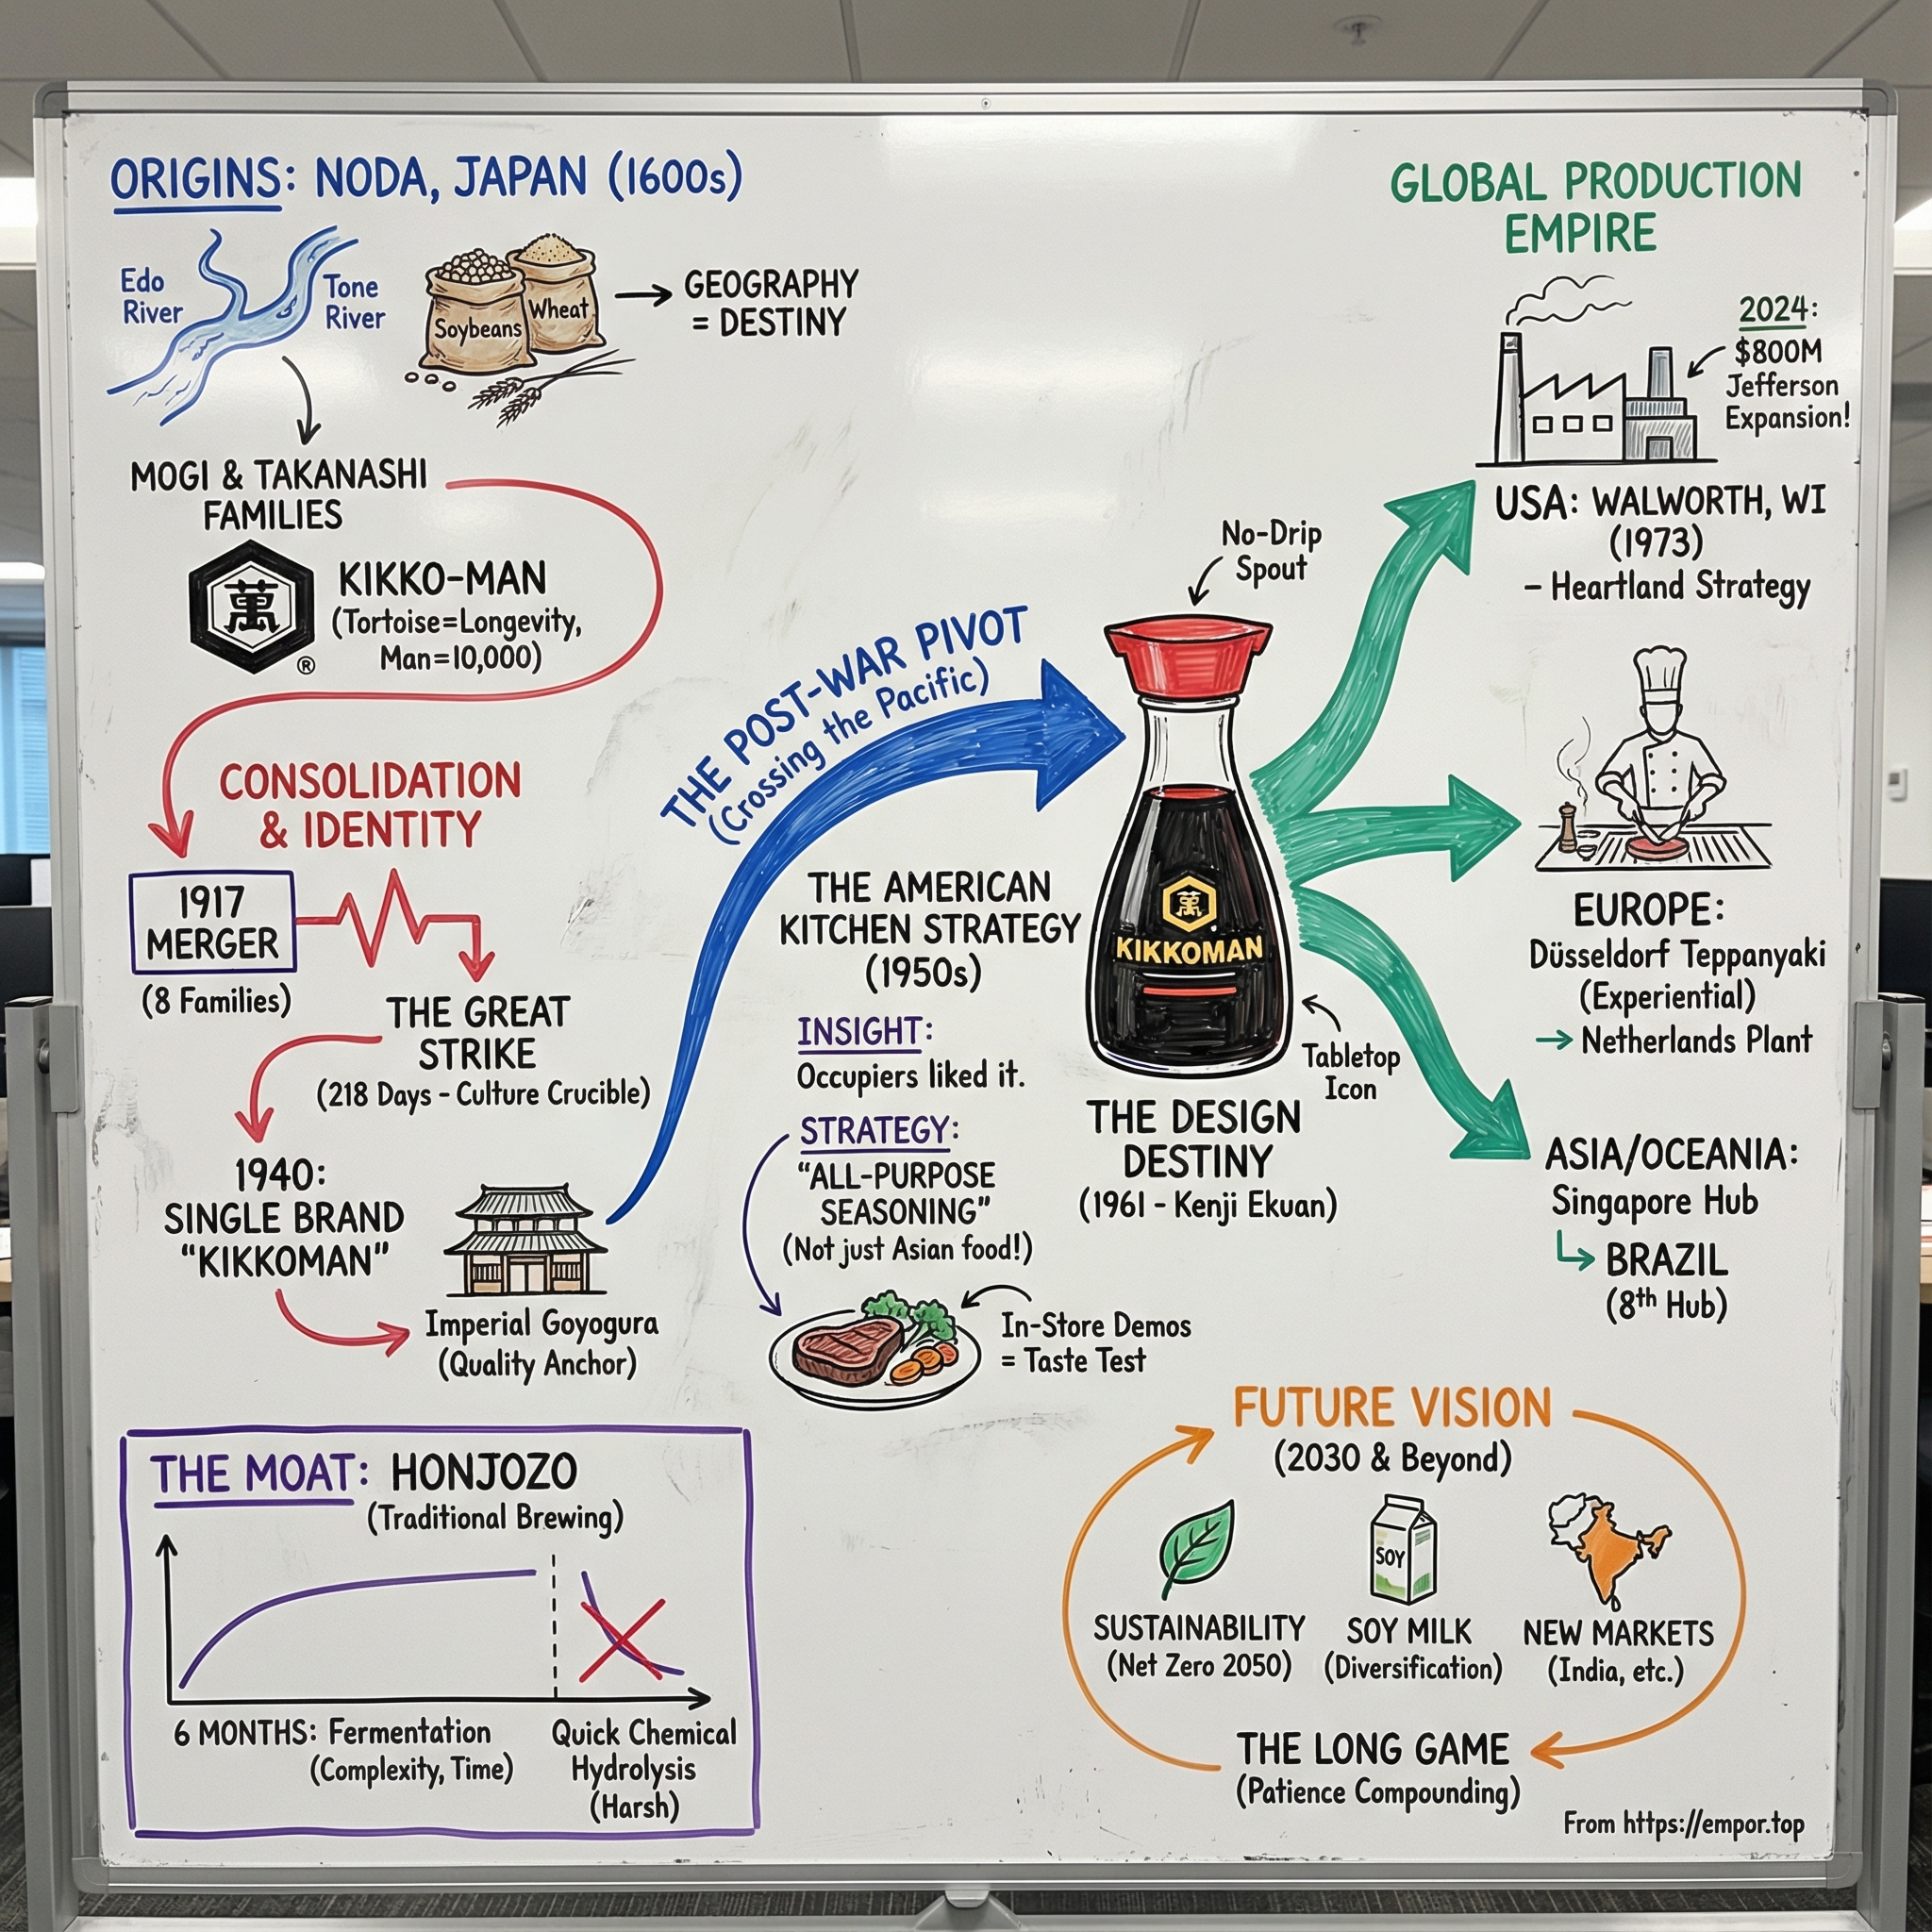 ORIGINS: NODA, JAPAN (1600s)
Edo
River
Tone
River
Soybeans
Wheat
GEOGRAPHY
= DESTINY
MOGI & TAKANASHI
FAMILIES
萬
®
KIKKO-MAN
(Tortoise=Longevity,
Man=10,000)
CONSOLIDATION
& IDENTITY
1917
MERGER
(8 Families)
THE GREAT
STRIKE
(218 Days - Culture Crucible)
1940:
SINGLE BRAND
"KIKKOMAN"
Imperial Goyogura
(Quality Anchor)
THE MOAT: HONJOZO
(Traditional Brewing)
6 MONTHS: Fermentation
(Complexity, Time)
Quick Chemical
Hydrolysis
(Harsh)
THE POST-WAR PIVOT
(Crossing the Pacific)
THE AMERICAN
KITCHEN STRATEGY
(1950s)
INSIGHT:
Occupiers liked it.
STRATEGY:
"ALL-PURPOSE
SEASONING"
(Not just Asian food!)
In-Store Demos
= Taste Test
No-Drip
Spout
萬
KIKKOMAN
Tabletop
Icon
THE DESIGN
DESTINY
(1961 - Kenji Ekuan)
GLOBAL PRODUCTION
EMPIRE
2024:
$800M
Jefferson
Expansion!
USA: WALWORTH, WI
(1973)
- Heartland Strategy
EUROPE:
Düsseldorf Teppanyaki
(Experiential)
→ Netherlands Plant
ASIA/OCEANIA:
Singapore Hub
BRAZIL
(8th Hub)
FUTURE VISION
(2030 & Beyond)
SOY
SUSTAINABILITY
(Net Zero 2050)
SOY MILK
(Diversification)
NEW MARKETS
(India, etc.)
THE LONG GAME
(Patience Compounding)
From https://empor.top